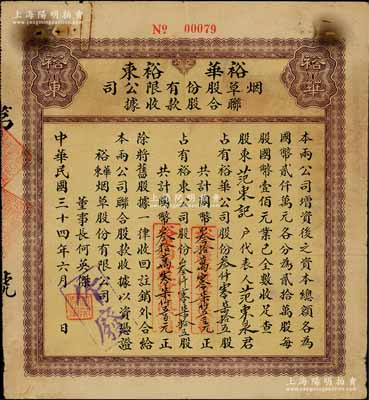 上海陽明拍賣有限公司
No 00079
裕華 裕東
烟草股份有限公司
聯合股款收據
裕華
裕東
本兩公司增資後之資本總額各為
國幣貳仟萬元各分為貳拾萬股每
股國幣壹佰元業已全數收足查
股東范東記戶代表人范東泉君
占有裕華公司股份叁仟零柒拾五股
共計國幣叁拾萬零柒仟五百元正
占有裕東公司股份叁仟零柒拾五股
共計國幣叁拾萬零柒仟五百元正
除將舊股據一律收回註銷外合給
本兩公司聯合股款收據以資憑證
裕華 裕東 烟草股份有限公司
董事長何英傑
中華民國三十四年六月 日
第
號
上海陽明拍賣有限公司